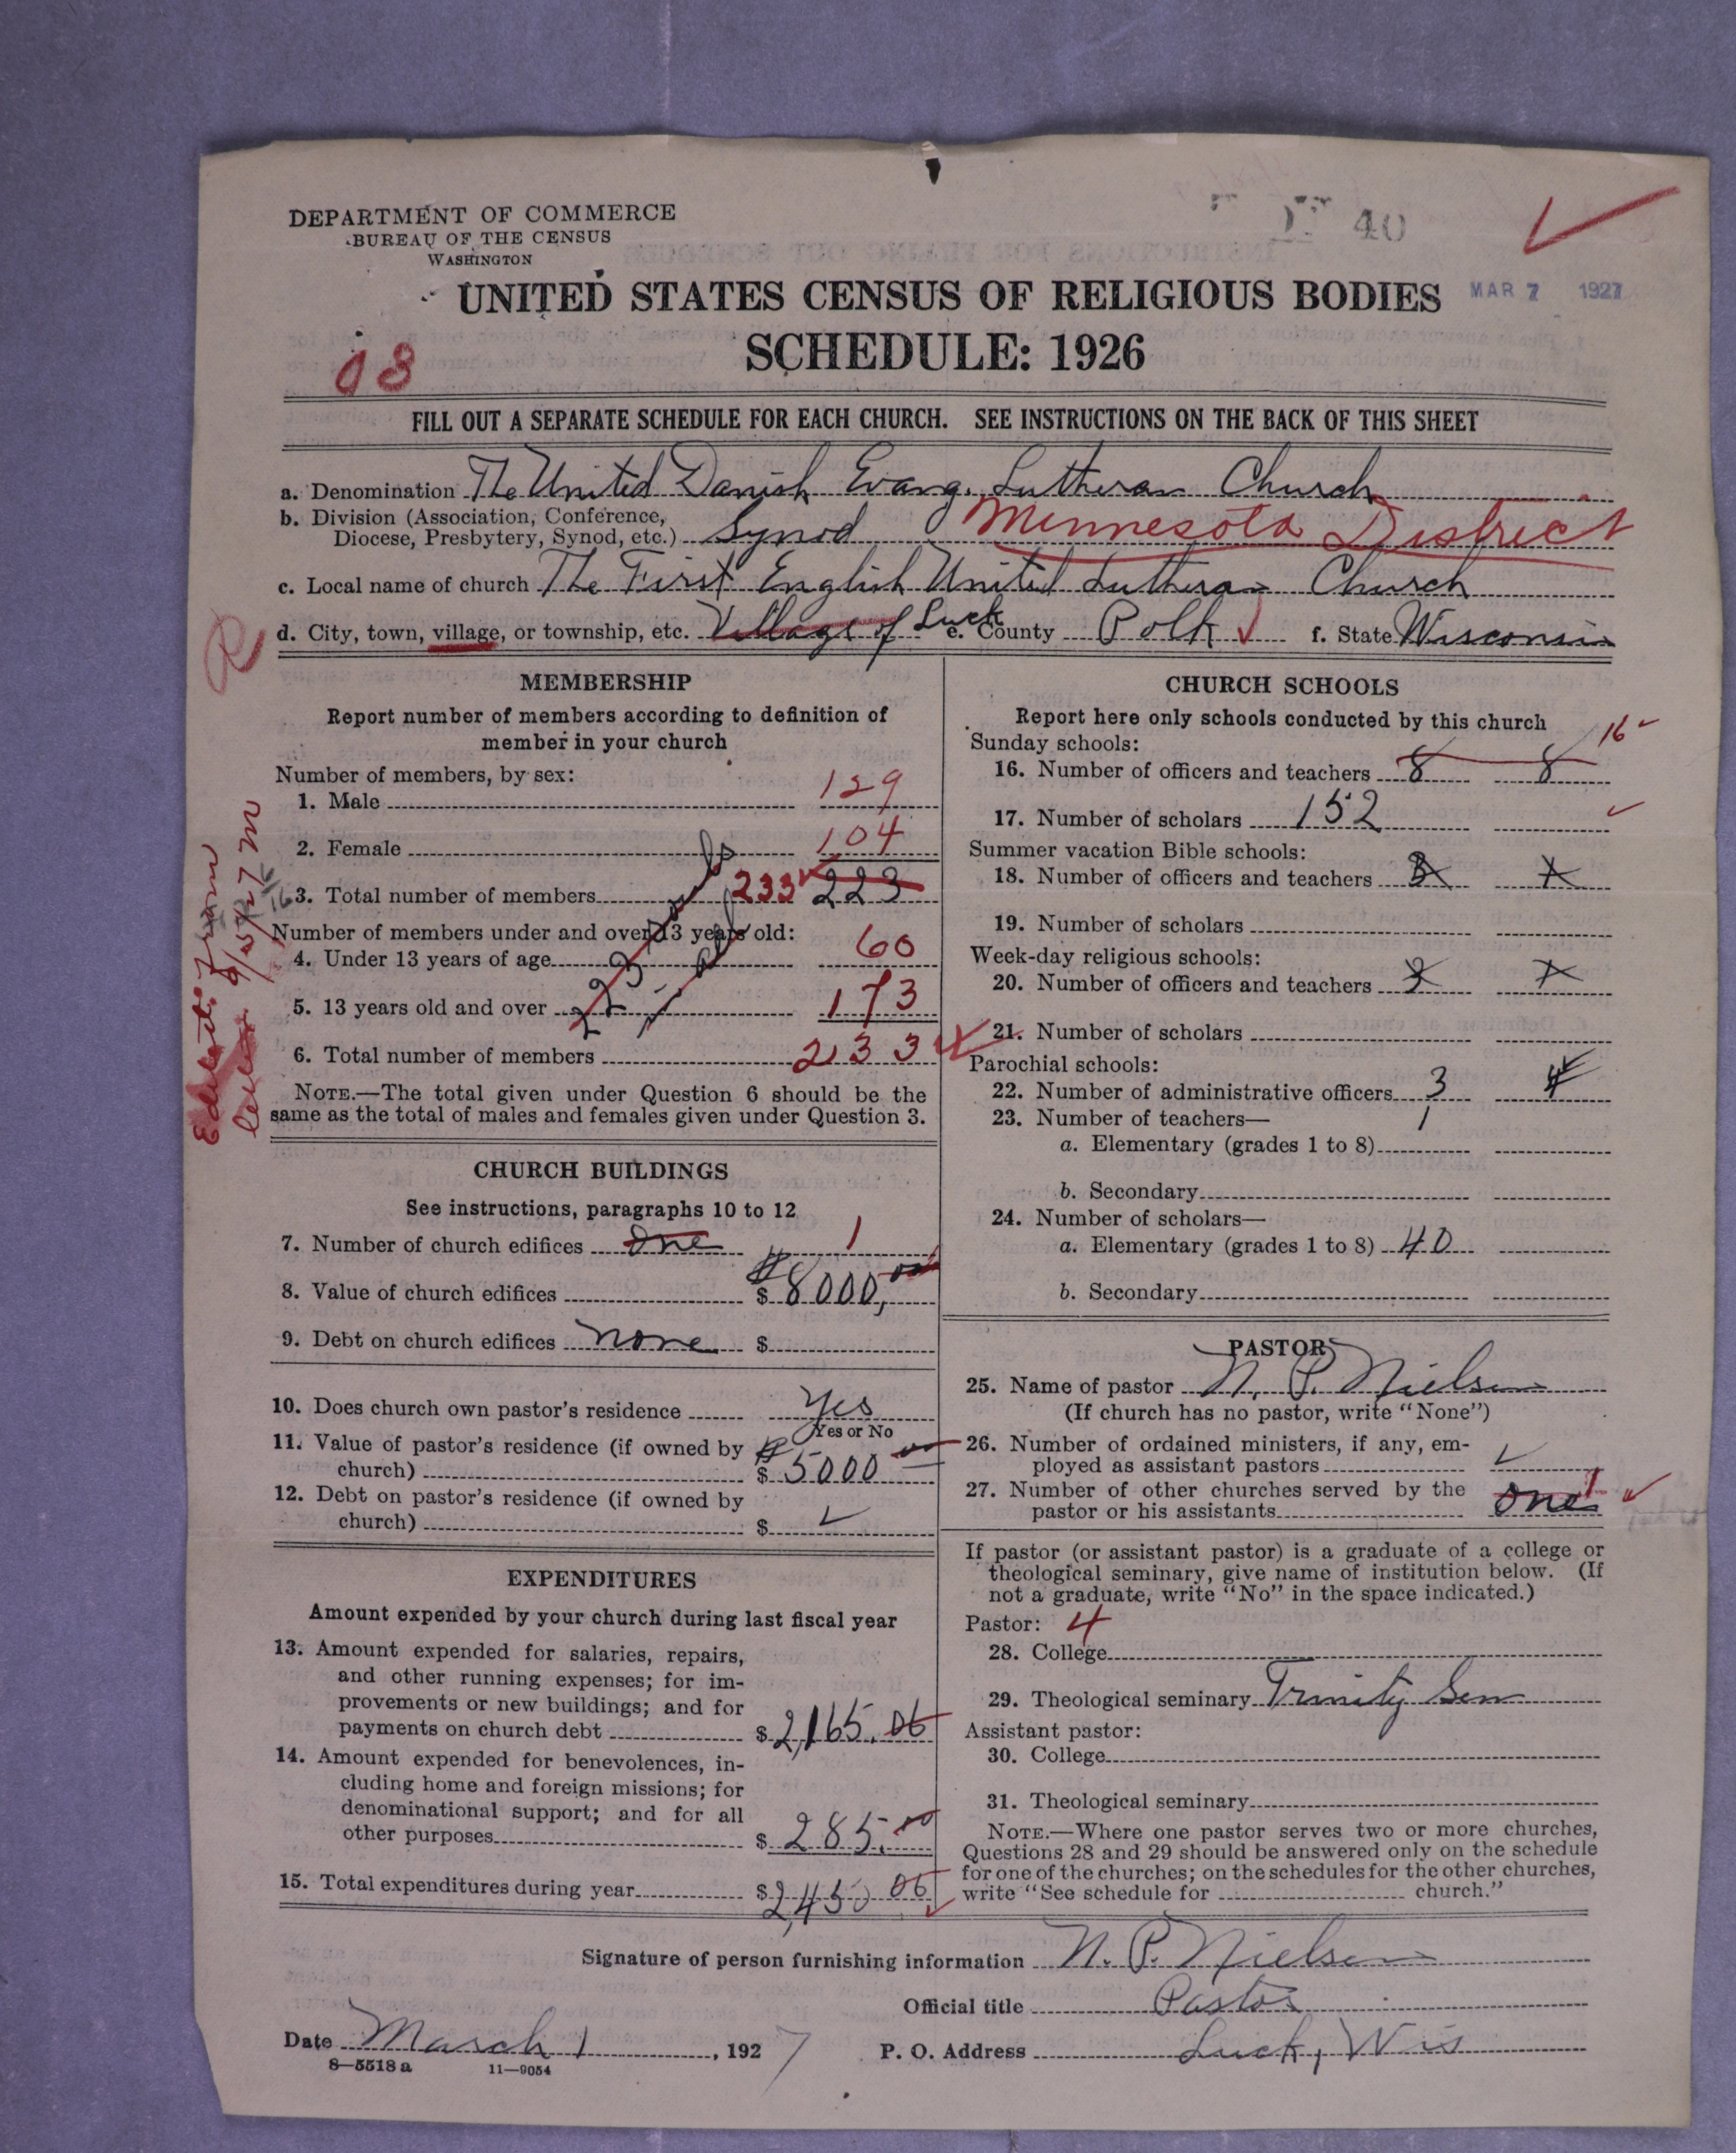 DEPARTMENT OF COMMERCE
BUREAU OF THE CENSUS
WASHINGTON
40
UNITED STATES CENSUS OF RELIGIOUS BODIES
MAR 7 1927
SCHEDULE: 1926
03
FILL OUT A SEPARATE SCHEDULE FOR EACH CHURCH. SEE INSTRUCTIONS ON THE BACK OF THIS SHEET
a. Denomination The United Danish Evang. Lutheran Church
b. Division (Association, Conference,
Diocese, Presbytery, Synod, etc.) Synod Minnesota District
c. Local name of church The First English United Lutheran Church
d. City, town, village, or township, etc. Village of Luck e. County Polk f. State Wisconsin
R
MEMBERSHIP
Report number of members according to definition of
member in your church
Number of members, by sex:
1. Male 129
2. Female 104
3. Total number of members 233 223
Number of members under and over 13 years old:
4. Under 13 years of age 60
5. 13 years old and over 173
6. Total number of members 233
NOTE.—The total given under Question 6 should be the
same as the total of males and females given under Question 3.
CHURCH BUILDINGS
See instructions, paragraphs 10 to 12
7. Number of church edifices One 1
8. Value of church edifices $ 8000,00
9. Debt on church edifices none $
10. Does church own pastor's residence Yes
Yes or No
11. Value of pastor's residence (if owned by
church) $ 5000 00
12. Debt on pastor's residence (if owned by
church) $
EXPENDITURES
Amount expended by your church during last fiscal year
13. Amount expended for salaries, repairs,
and other running expenses; for im-
provements or new buildings; and for
payments on church debt $ 2,165.06
14. Amount expended for benevolences, in-
cluding home and foreign missions; for
denominational support; and for all
other purposes $ 285.00
15. Total expenditures during year $ 2,450 06
CHURCH SCHOOLS
Report here only schools conducted by this church
Sunday schools: 16
16. Number of officers and teachers 8 8
17. Number of scholars 152
Summer vacation Bible schools:
18. Number of officers and teachers
19. Number of scholars
Week-day religious schools:
20. Number of officers and teachers
21. Number of scholars
Parochial schools:
22. Number of administrative officers 3 4
23. Number of teachers— 1
a. Elementary (grades 1 to 8)
b. Secondary
24. Number of scholars—
a. Elementary (grades 1 to 8) 40
b. Secondary
PASTOR
25. Name of pastor N. P. Nielsen
(If church has no pastor, write "None")
26. Number of ordained ministers, if any, em-
ployed as assistant pastors
27. Number of other churches served by the
pastor or his assistants one 1
If pastor (or assistant pastor) is a graduate of a college or
theological seminary, give name of institution below. (If
not a graduate, write "No" in the space indicated.)
Pastor: 4
28. College
29. Theological seminary Trinity Sem
Assistant pastor:
30. College
31. Theological seminary
NOTE.—Where one pastor serves two or more churches,
Questions 28 and 29 should be answered only on the schedule
for one of the churches; on the schedules for the other churches,
write "See schedule for church."
Signature of person furnishing information N. P. Nielsen
Official title Pastor
Date March 1, 1927
P. O. Address Luck, Wis
8—5518 a 11—9054